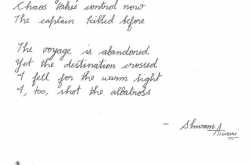 Chaos takes control now
The captain killed before
The voyage is abandoned
Yet the destination crossed
I fell for the warm light
I, too, shot the albatross
- Shivam